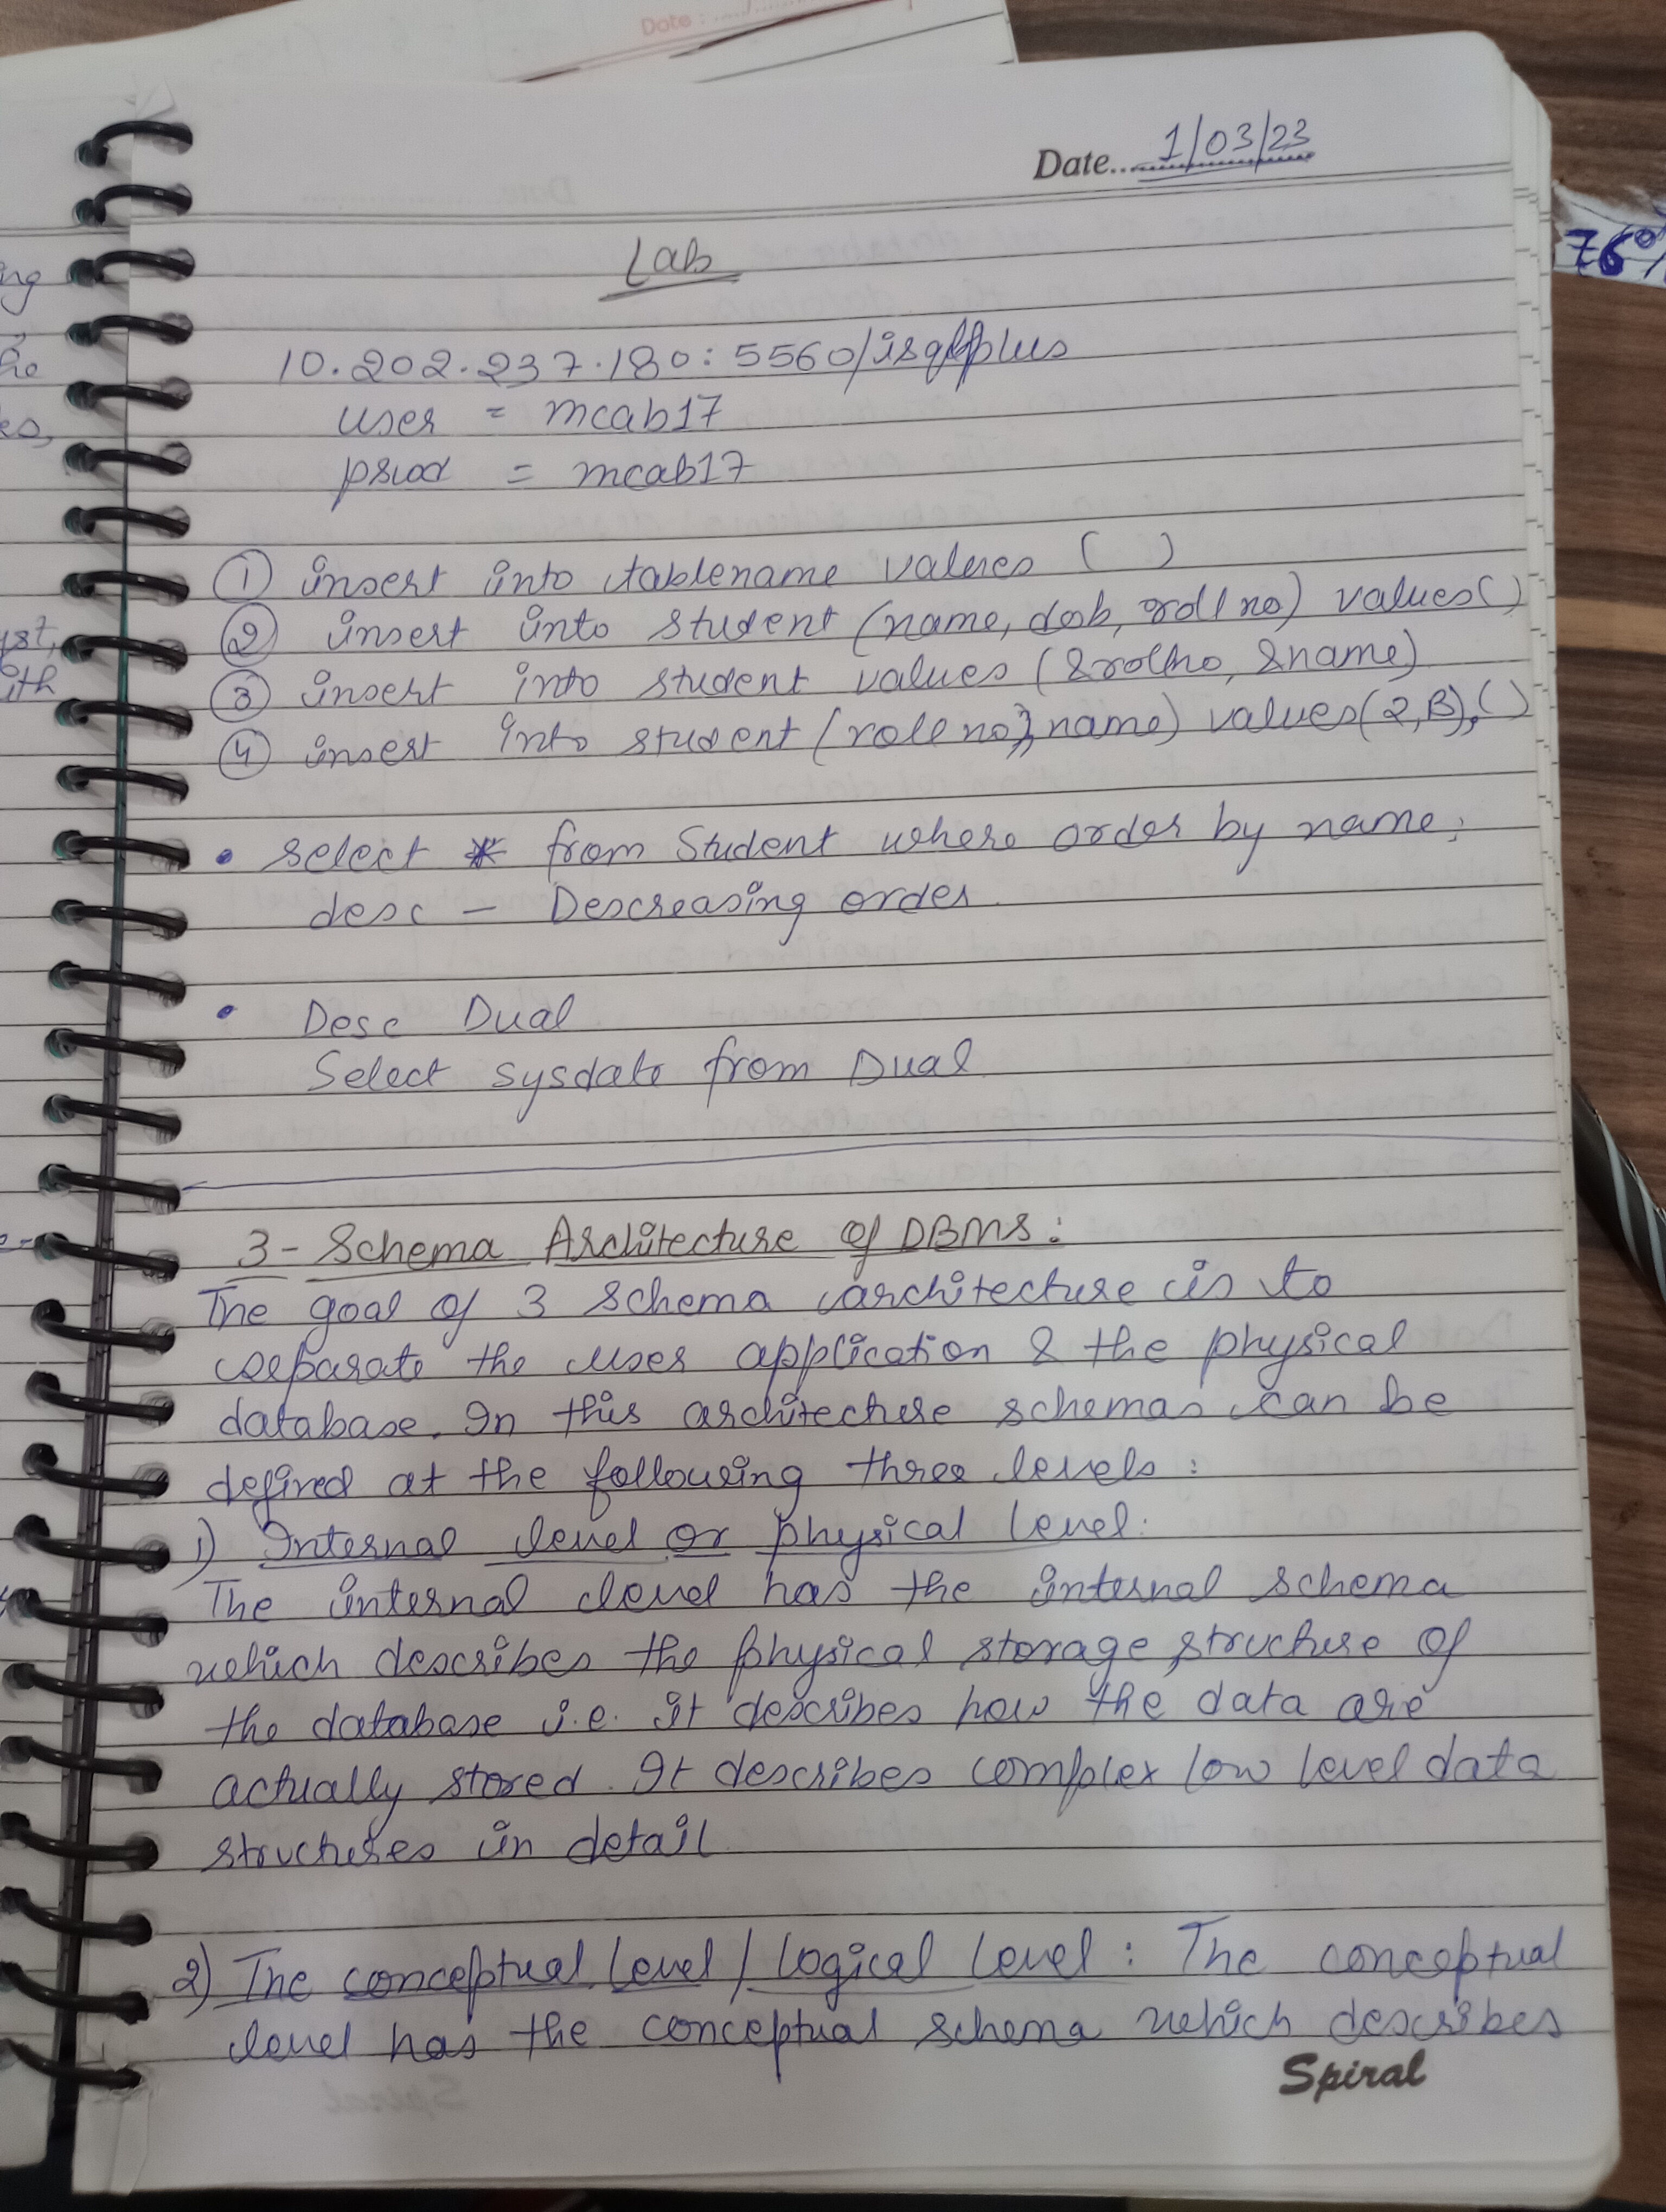 Date :
Date... 1/03/23
76%
Lab
10.202.237.180:5560/isqlplus
user = mcab17
pswd = mcab17
① insert into tablename values ( )
② insert into student (name, dob, roll no) values( )
③ insert into student values (&rollno, &name)
④ insert into student (roll no, name) values(2,B),( )
• select * from Student where order by name;
desc – Descreasing order.
• Desc Dual
Select sysdate from Dual
3- Schema Architecture of DBMS:
The goal of 3 schema architecture is to
seperate the user application & the physical
database. In this architecture schemas can be
defined at the following three levels:
1) Internal level or physical level:
The internal level has the internal schema
which describes the physical storage structure of
the database i.e. it describes how the data are
actually stored. It describes complex low level data
structures in detail
2) The conceptual level / Logical Level : The conceptual
level has the conceptual schema which describes
Spiral